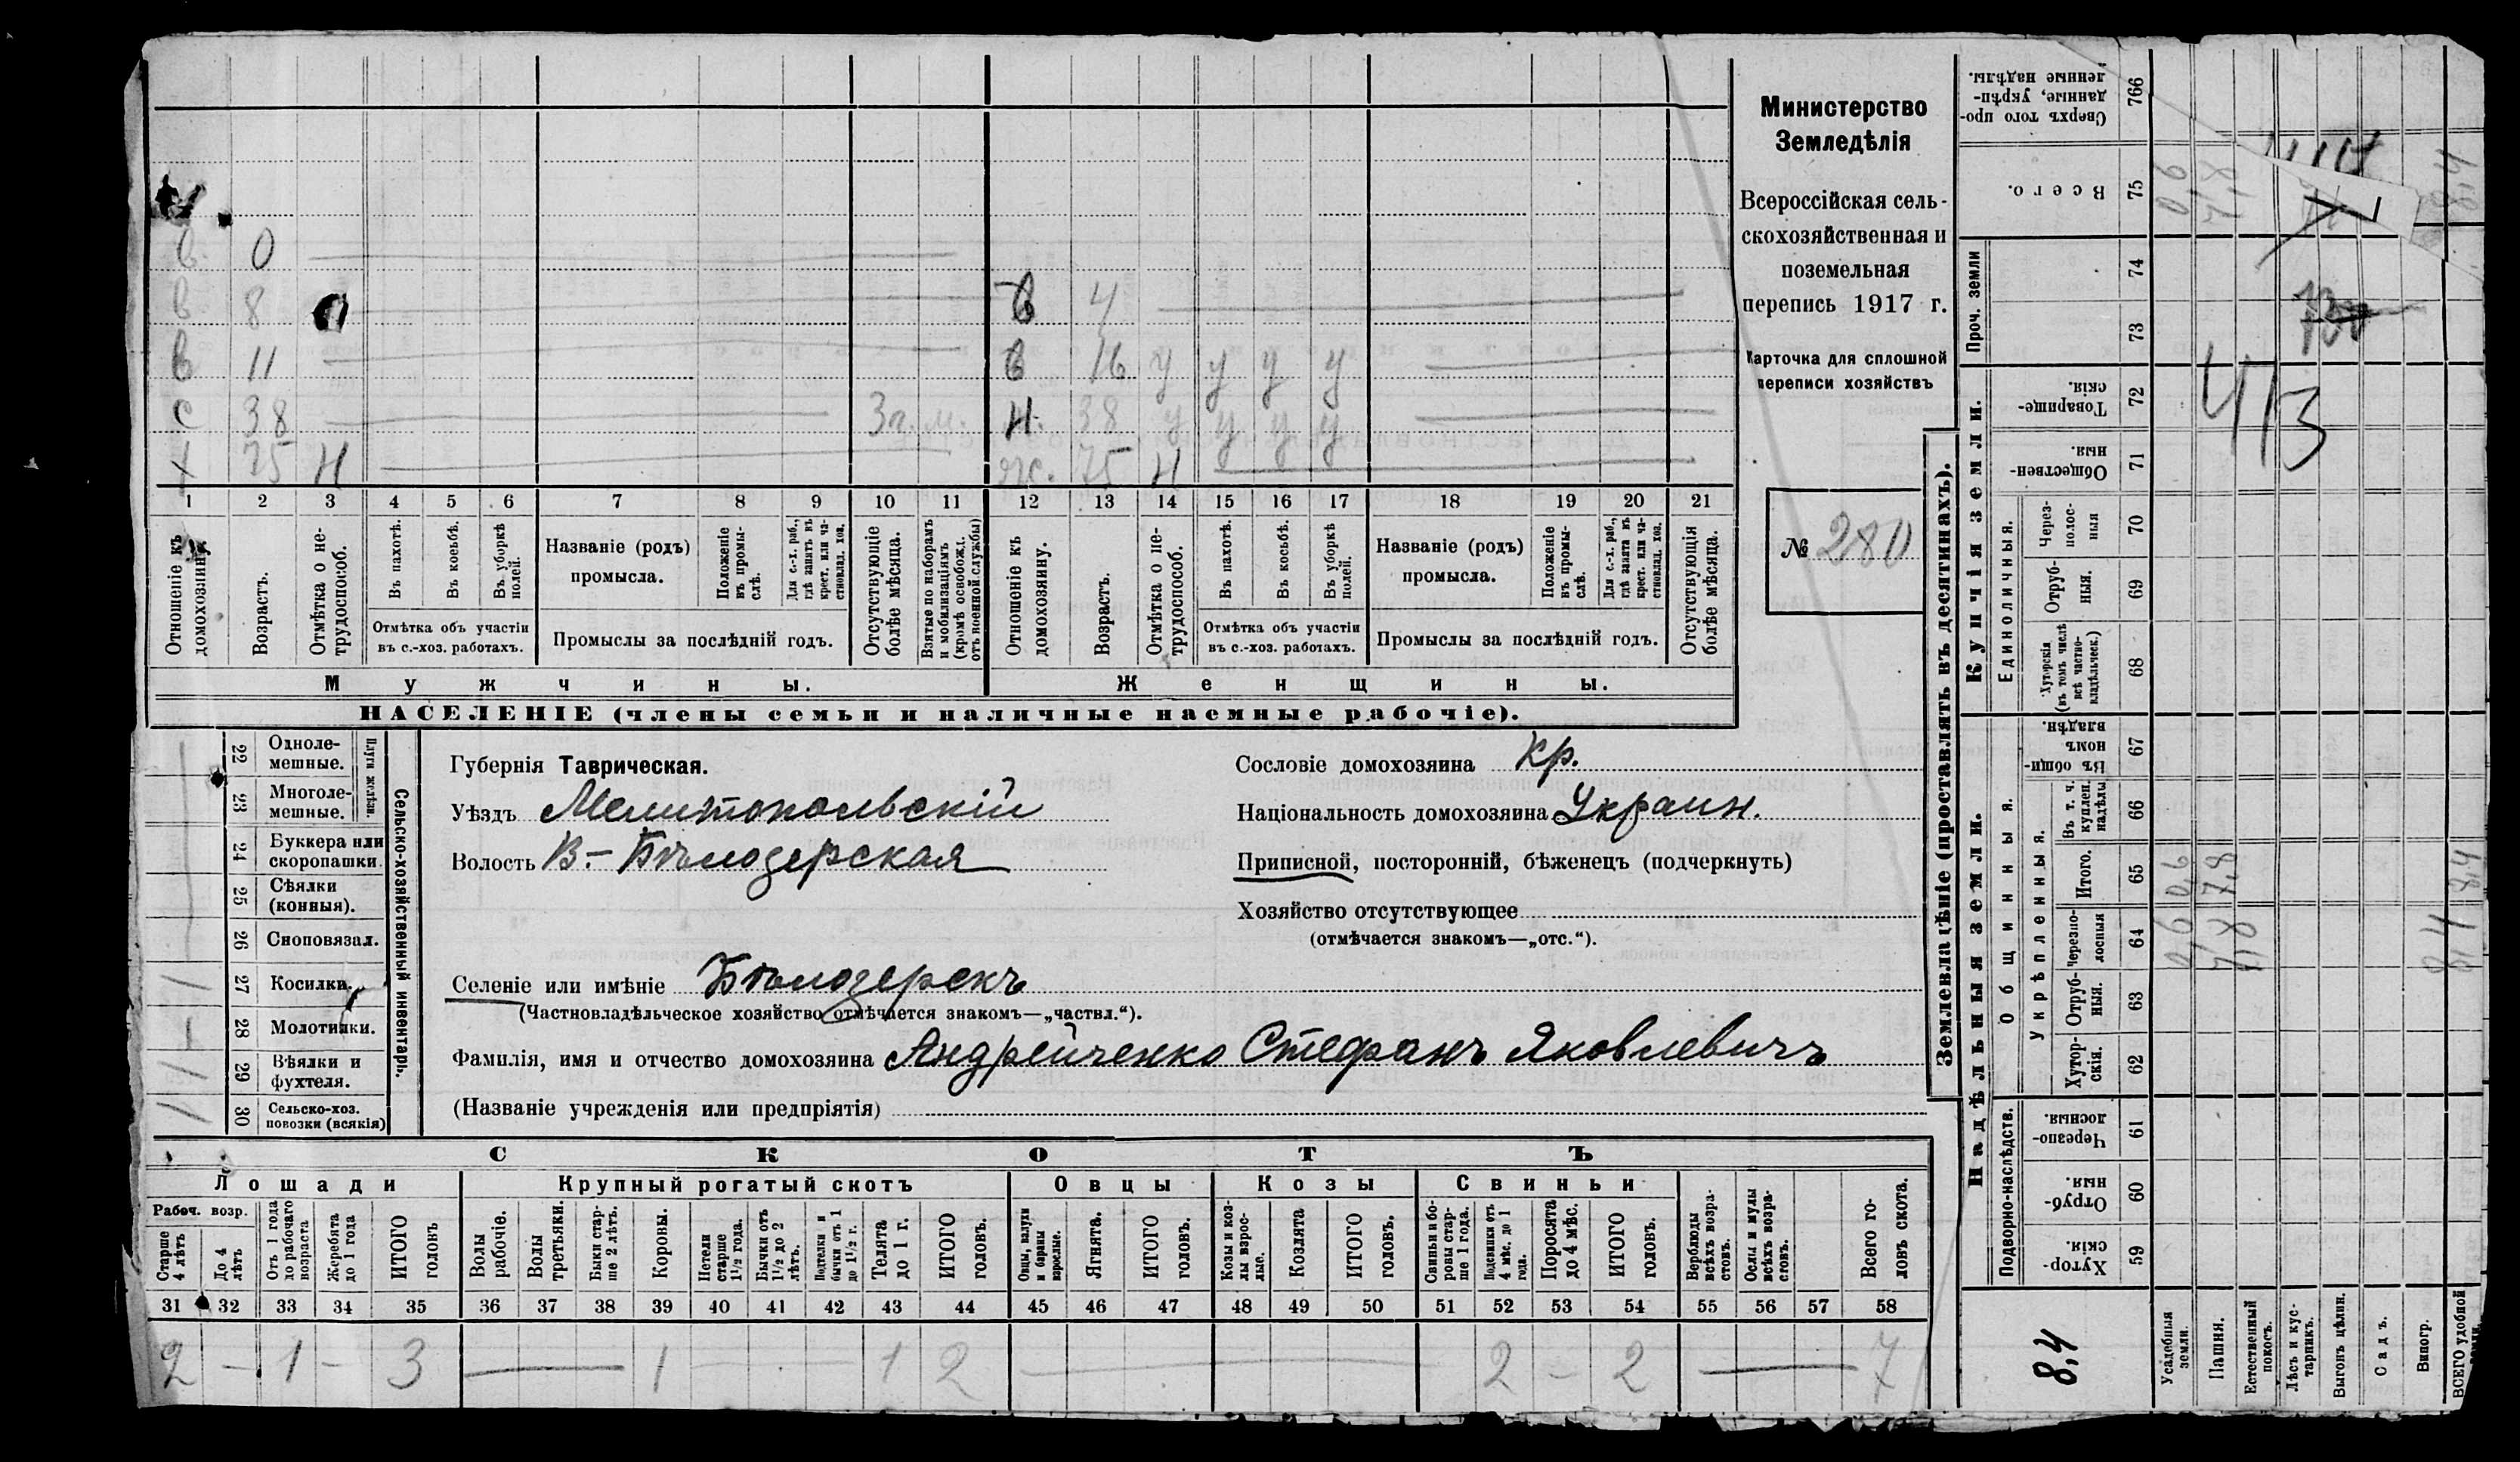 в 0
в 8 П в 4
в 11 в 16 у у у у
с 38 3 г. м. н. 38 у у у у
х 75 Н ж. 75 Н
1 2 3 4 5 6 7 8 9 10 11 12 13 14 15 16 17 18 19 20 21
Отношеніе къ домохозяину.
Возрастъ.
Отмѣтка о не-
трудоспособ.
Въ пахотѣ.
Въ косьбѣ.
Въ уборкѣ
полей.
Отмѣтка объ участіи
въ с.-хоз. работахъ.
Названіе (родъ)
промысла.
Положеніе
въ промы-
слѣ.
Для с.-х. раб.,
гдѣ занятъ въ
крест. или ча-
стновлад. хоз.
Промыслы за послѣдній годъ.
Отсутствующіе
болѣе мѣсяца.
Взятые по наборамъ
и мобилизаціямъ
(кромѣ освобожд.
отъ военной службы)
Отношеніе къ
домохозяину.
Возрастъ.
Отмѣтка о не-
трудоспособ.
Въ пахотѣ.
Въ косьбѣ.
Въ уборкѣ
полей.
Отмѣтка объ участіи
въ с.-хоз. работахъ.
Названіе (родъ)
промысла.
Положеніе
въ промы-
слѣ.
Для с.-х. раб.,
гдѣ занята въ
крест. или ча-
стновлад. хоз.
Промыслы за послѣдній годъ.
Отсутствующія
болѣе мѣсяца.
Мужчины.
Женщины.
НАСЕЛЕНІЕ (члены семьи и наличные наемные рабочіе).
Министерство
Земледѣлія
Всероссійская сель-
скохозяйственная и
поземельная
перепись 1917 г.
Карточка для сплошной
переписи хозяйствъ
№ 280
22 Одноле-
мешные.
23 Многоле-
мешные.
Плуги желѣзн.
24 Буккера или
скоропашки.
25 Сѣялки
(конныя).
26 Сноповязал.
27 Косилки. 1
28 Молотилки.
29 Вѣялки и
фухтеля. 1
30 Сельско-хоз.
повозки (всякія) 1
Сельско-хозяйственный инвентарь.
Губернія Таврическая.
Уѣздъ Мелитопольскій
Волость В.-Бѣлозерская
Селеніе или имѣніе Бѣлозерскъ
(Частновладѣльческое хозяйство отмѣчается знакомъ—„частвл.“).
Фамилія, имя и отчество домохозяина Андрейченко Стефанъ Яковлевичъ
(Названіе учрежденія или предпріятія)
Сословіе домохозяина кр.
Національность домохозяина Украин.
Приписной, посторонній, бѣженецъ (подчеркнуть)
Хозяйство отсутствующее
(отмѣчается знакомъ—„отс.“).
СКОТЪ
Лошади
Крупный рогатый скотъ
Овцы
Козы
Свиньи
Рабоч. возр.
Старше
4 лѣтъ
До 4
лѣтъ
Отъ 1 года
до рабочаго
возраста
Жеребята
до 1 года
ИТОГО
головъ
Волы
рабочіе.
Волы
третьяки.
Быки стар-
ше 2 лѣтъ.
Коровы.
Нетели
старше
1½ года.
Бычки отъ
1½ до 2
лѣтъ.
Подтелки и
бычки отъ 1
до 1½ г.
Телята
до 1 г.
ИТОГО
головъ.
Овцы, валухи
и бараны
взрослые.
Ягнята.
ИТОГО
головъ.
Козы и коз-
лы взрос-
лые.
Козлята
ИТОГО
головъ.
Свиньи и бо-
ровы стар-
ше 1 года.
Подсвинки отъ
4 мѣс. до 1
года.
Поросята
до 4 мѣс.
ИТОГО
головъ.
Верблюды
всѣхъ возра-
стовъ.
Ослы и мулы
всѣхъ возра-
стовъ.
Всего го-
ловъ скота.
31 32 33 34 35 36 37 38 39 40 41 42 43 44 45 46 47 48 49 50 51 52 53 54 55 56 57 58
2 – 1 – 3 — 1 1 2 — 2 – 2 — 7
Землевладѣніе (проставлять въ десятинахъ).
Надѣльныя земли.
Купчія земли.
Проч. земли
Подворно-наслѣдств.
Общинныя.
Укрѣпленныя.
Единоличныя.
Хутор-
скія. 59
Отруб-
ныя. 60
Черезпо-
лосныя. 61
Хутор-
скія. 62
Отруб-
ныя. 63
Черезпо-
лосныя 64
Итого. 65
Въ т. ч.
куплен.
надѣлы 66
Въ общи-
номъ
владѣн. 67
Хуторскія
(въ томъ числѣ
всѣ частно-
владѣльческ.) 68
Отруб-
ныя. 69
Через-
полос-
ныя 70
Обществен-
ныя. 71
Товарище-
скія. 72
73
74
Всего. 75
Сверхъ того про-
данные, укрѣп-
ленные надѣлы. 76б
8,4
Усадебныя
земли. 0,6 0,6 0,6
Пашня. 7,8 7,8 7,8
Естественный
покосъ.
Лѣсъ и кус-
тарникъ.
Выгонъ цѣлин.
Садъ.
Виногр.
ВСЕГО удобной
земли. 8,4 8,4 8,4
413